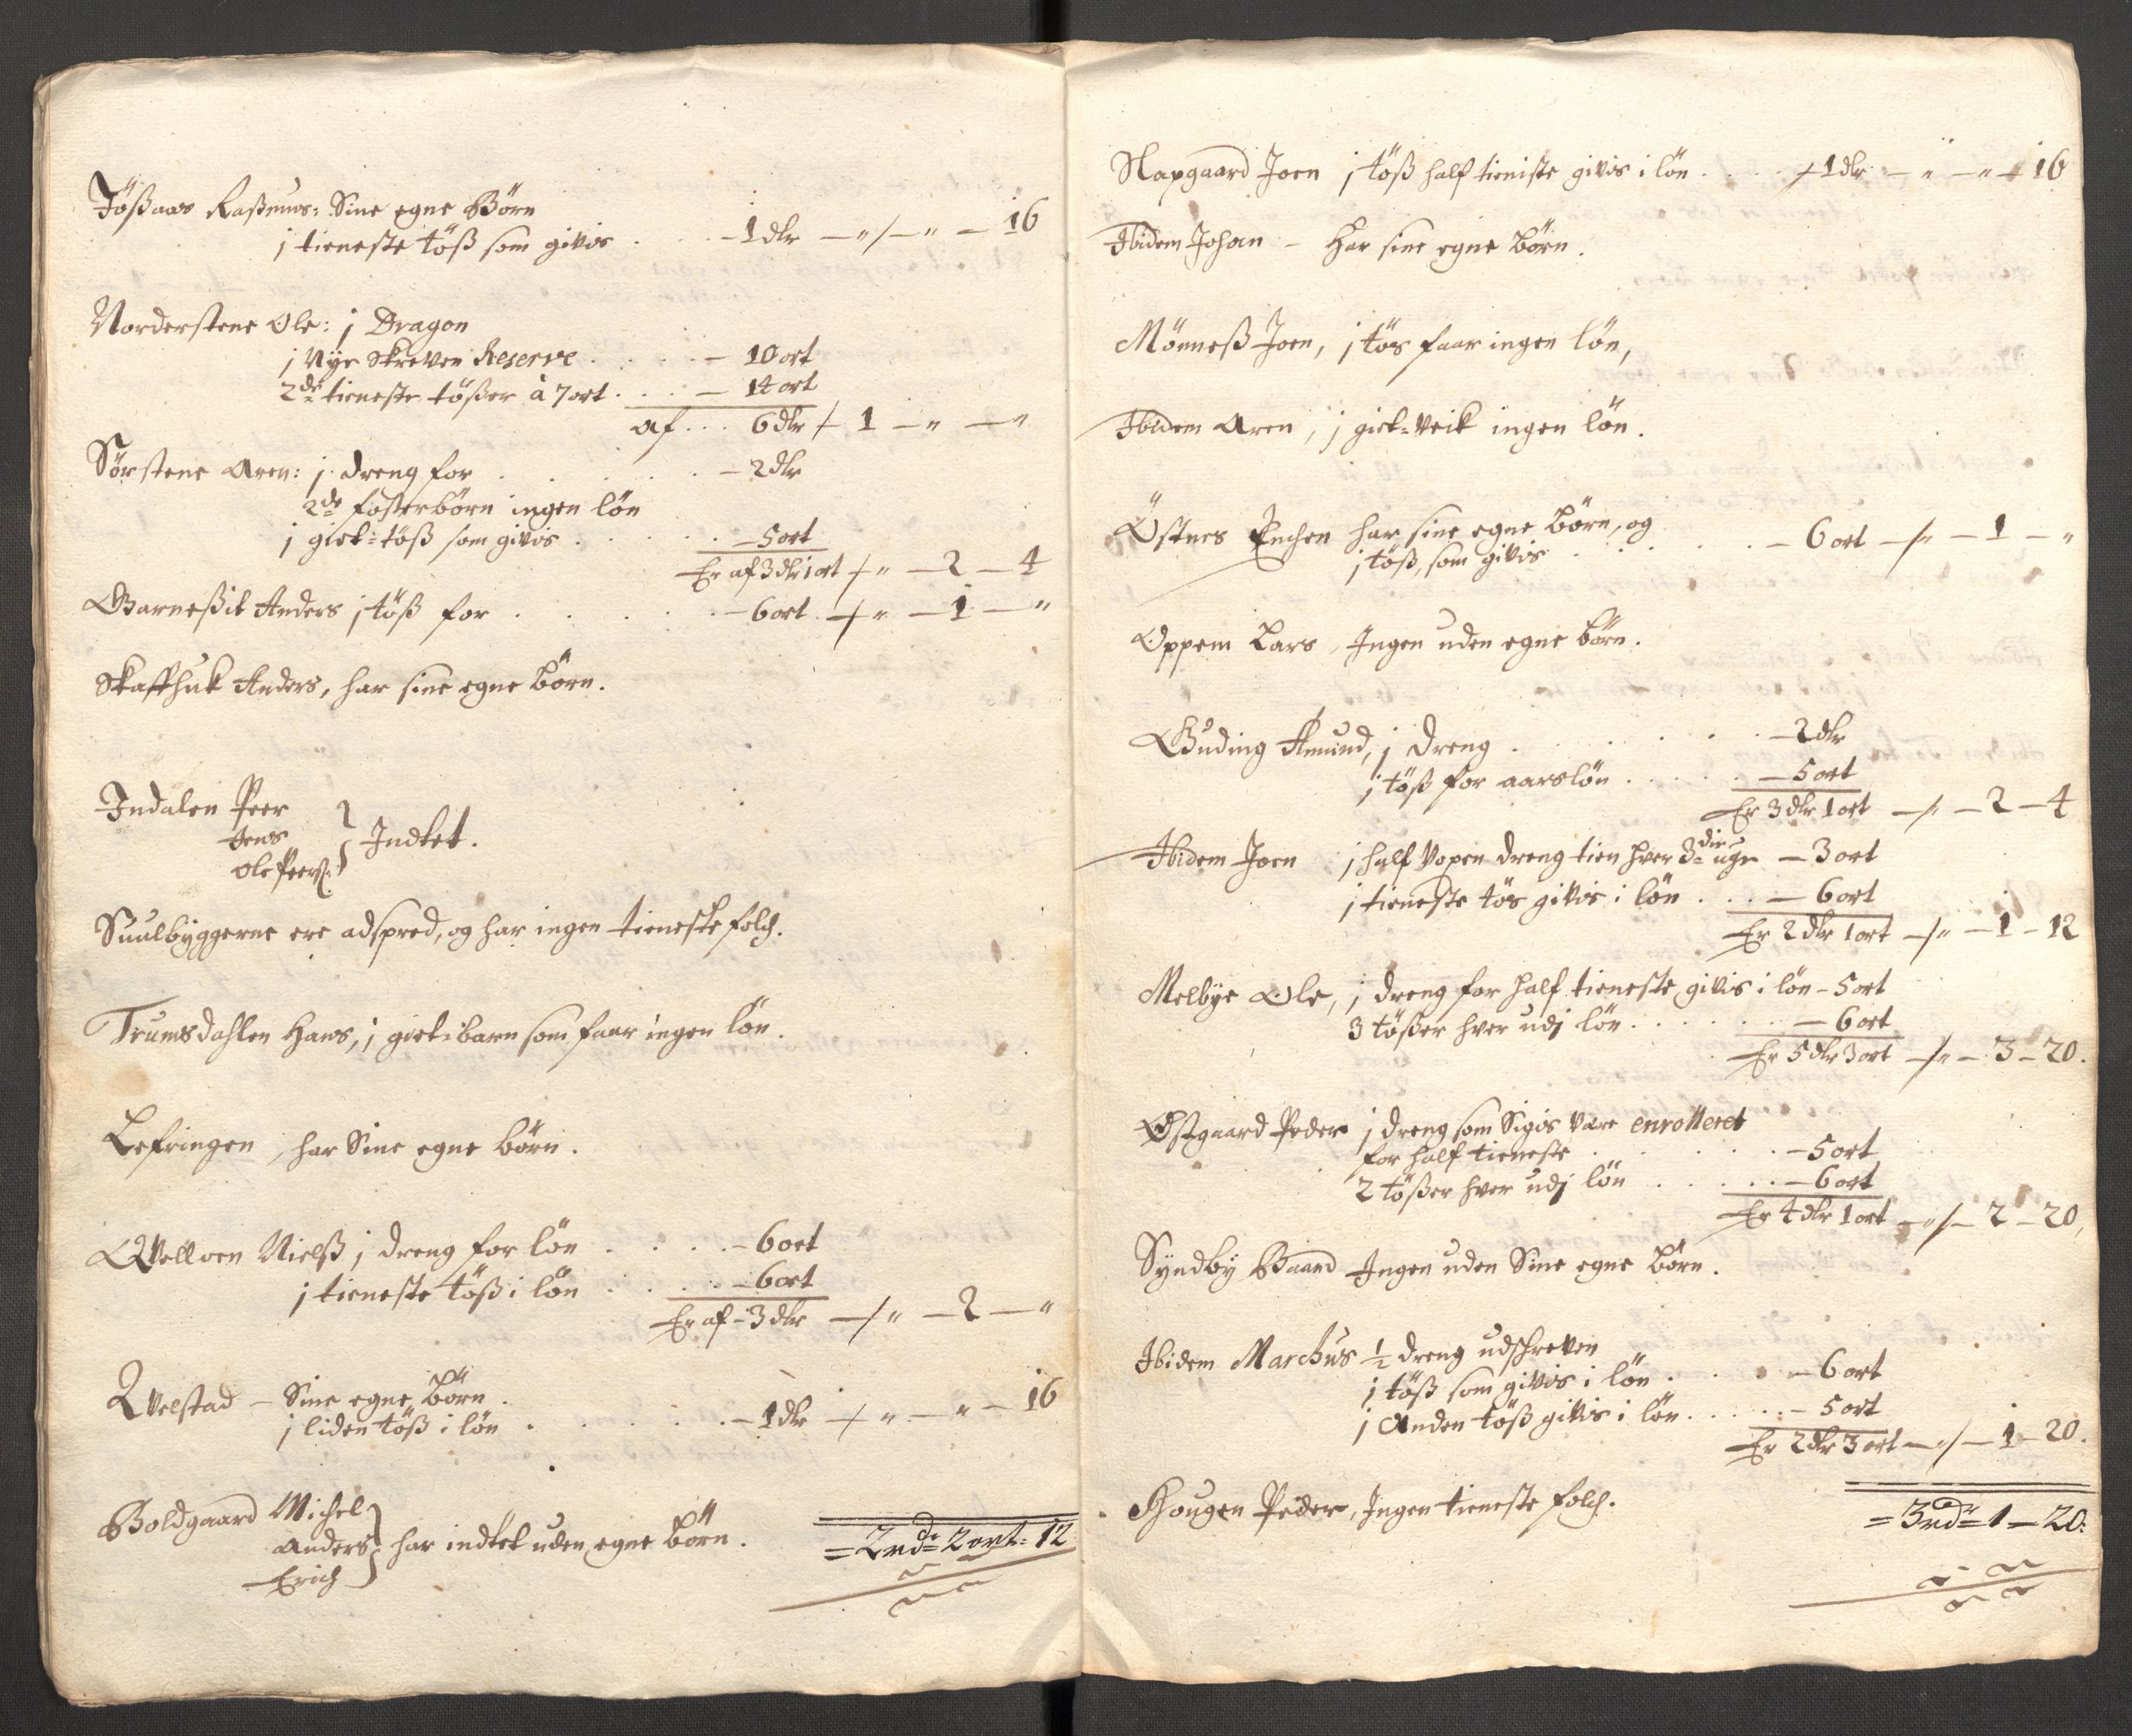 Jößaas Raßmus: Sine egne Börn
j tieneste töß som givis . . . – 1 dlr – " / – " – 16
Norderstene Ole: j Dragon
j Nye Skreven Reserve . . . . – 10 ort
2de tieneste tößer à 7 ort . . . – 14 ort
af . . . 6 dlr / 1 – " – "
Sörstene Aren: j dreng for . . . . – 2 dlr
2de fosterbörn ingen lön
j giet-töß som givis . . . . – 5 ort
Er af 3 dlr 1 ort / " – 2 – 4
Barneßit Anders j töß for . . . . – 6 ort / " – 1 – "
Skaffhuk Anders, har sine egne Börn.
Indalen Peer
Jens } Indtet.
Ole Peers:
Suulbyggerne ere adspred, og har ingen tieneste folch.
Trumsdahlen Hans, j giet-barn som faar ingen lön.
Lefringen, har Sine egne börn.
Qvelloen Nielß j dreng for lön . . . . – 6 ort
j tieneste töß i lön . . . – 6 ort
Er af – 3 dlr – / " – 2 – "
Qvelstad – Sine egne Börn.
j liden töß i lön . . . . . – 1 dlr / " – " – 16
Boldgaard Michel
Anders } har indtet uden egne Börn.
Erich
= 2 rdr 2 ort: 12
Napgaard Joen j töß half tieniste givis i lön . . . . / 1 dlr – " – " – 16
Ibidem Johan – Har sine egne Börn.
Mönneß Joen, j tös faar ingen lön,
Ibidem Aren, j giet-veik ingen lön.
Östnes Enchen har sine egne Börn, og
j töß, som givis . . . . . – 6 ort – / " – 1 – "
Oppem Lars, Ingen uden egne börn.
Buding Amund, j dreng . . . . . . – 2 dlr
j töß for aarslön . . . . – 5 ort
Er 3 dlr 1 ort – / " – 2 – 4
Ibidem Joen j half Voxen dreng tien hver 3die uge – 3 ort
j tieneste tös givis i lön . . . – 6 ort
Er 2 dlr 1 ort – / " – 1 – 12
Melbye Ole, j dreng for half tieneste givis i lön – 5 ort
3 tößer hver udj lön . . . . . – 6 ort
Er 5 dlr 3 ort – / " – 3 – 20.
Östgaard Peder j dreng som Sigis være enrolleret
for half tieneste . . . . . – 5 ort
2 tößer hver udj lön . . . . . – 6 ort
Er 4 dlr 1 ort – " / – 2 – 20,
Syndby Baard Ingen uden Sine egne Börn.
Ibidem Marchus ½ dreng udskreven
j töß som givis i lön . . . – 6 ort
j Anden töß givis i lön . . . . . – 5 ort
Er 2 dlr 3 ort – " / – 1 – 20.
Hougen Peder, Ingen tieneste folch.
= 3 rdr 1 – 20: